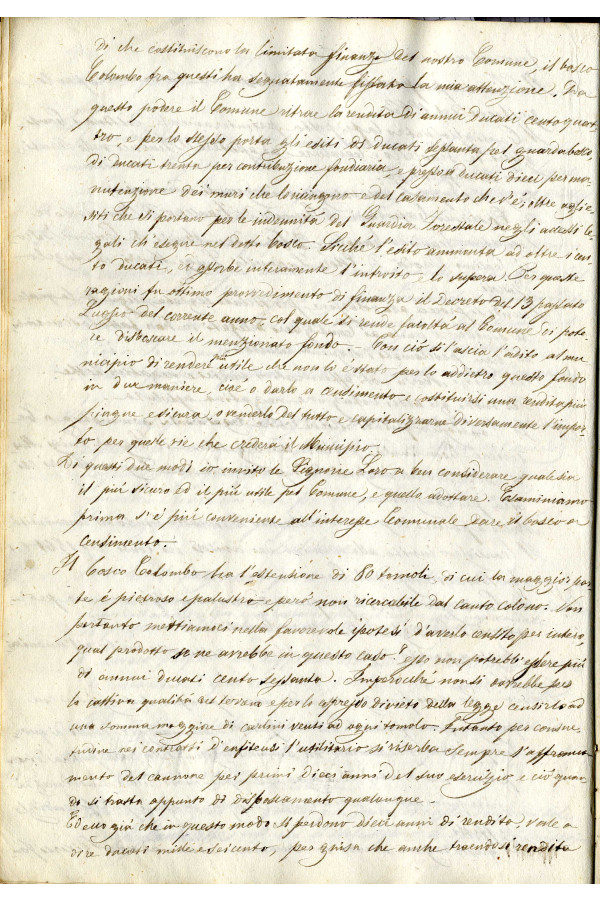 di che costituiscono la limitata finanza del nostro Comune, il bosco
Colombo fra questi ha segnatamente fissato la mia attenzione. Da
questo podere il Comune ritrae la rendita di annui Ducati cento quat-
tro, e per lo stesso porta gli esiti di ducati sessanta pel guardabosco,
di ducati trenta per contribuzione fondiaria, e presso a ducati dieci per ma-
nutenzione dei muri che lo cingono e del casamento che v'è, oltre agli e-
siti che si portano per le indennità del Guardia Forestale negli accessi le-
gali ch'esegue nel detto bosco. Sicché l'esito ammonta ad oltre i cen-
to ducati, ed assorbe interamente l'introito, lo supera. Per queste
ragioni fu ottimo provvedimento di finanza il Decreto del 13 passato
Luglio del corrente anno, col quale si rende facoltà al Comune di pote-
re disboscare il menzionato fondo. Con ciò si lascia l'adito al mu-
nicipio di rendere utile che non lo è stato per lo addietro questo fondo
in due maniere, cioè o darlo a censimento e costituirsi una rendita più
pingue e sicura, o venderlo del tutto e capitalizzarne diversamente l'impor-
to per quelle vie che crederà il Municipio.
Di questi due modi io invito le Signorie Loro a ben considerare quale sia
il più sicuro ed il più utile pel Comune, e quello adottare. Esaminiamo
prima s'è più conveniente all'interesse Comunale dare il bosco a
censimento.
Il bosco Colombo ha l'estensione di 80 tomoli, di cui la maggior par-
te è pietroso e palustro e però non ricercabile dal cauto colono. Non
pertanto mettiamoci nella favorevole ipotesi d'averlo censito per intero,
qual prodotto se ne avrebbe in questo caso? esso non potrebbe essere più
di annui ducati cento sessanta. Imperocché non si dovrebbe per
la cattiva qualità del terreno e per lo espresso divieto della legge censirlo ad
una somma maggiore di carlini venti ad ogni tomolo. Intanto per consue-
tudine nei contratti d'enfiteusi l'utilitario si riserba sempre l'affranca-
mento del cannone pei primi dieci anni del suo esercizio e ciò quan-
do si tratta appunto di dissodamento qualunque.
Ed ecco già che in questo modo si perdono dieci anni di rendita, vale a
dire ducati mille e seicento, per guisa che anche traendosi rendita